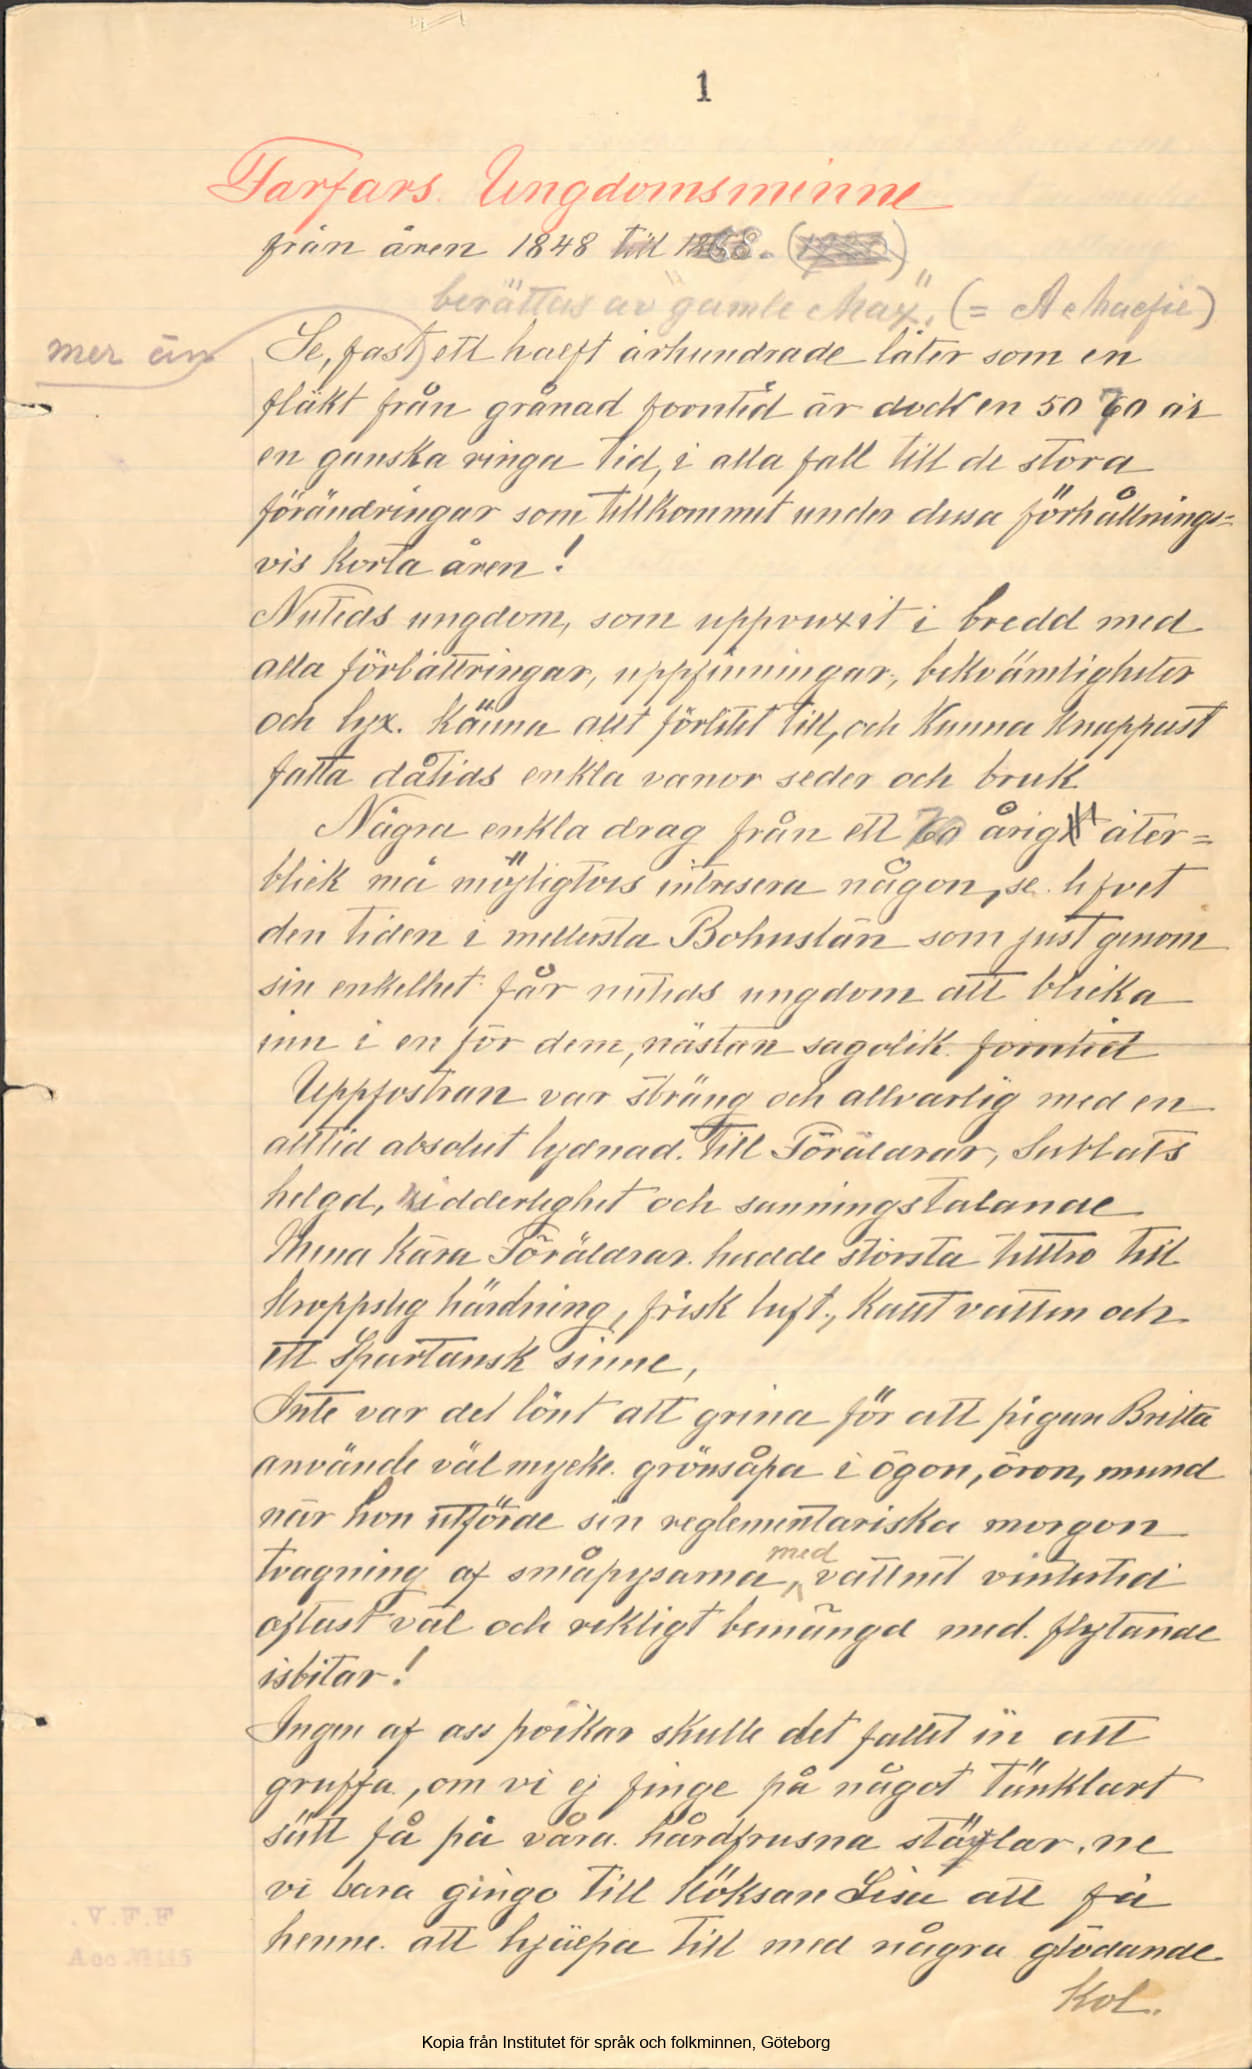 1
Farfars Ungdomsminne
från åren 1848 till 1868.
berättas av "gamle Max". (= A Macfie)
mer än
Se, fast ett halft århundrade låter som en
fläkt från grånad forntid är dock en 50 70 år
en ganska ringa tid, i alla fall till de stora
förändringar som tillkommit under dessa förhållnings=
vis korta åren!
Nutids ungdom, som uppvuxit i bredd med
alla förbättringar, uppfinningar, bekvämligheter
och lyx. känna allt förlitet till, och kunna knappast
fatta dåtids enkla vanor seder och bruk
Några enkla drag från ett 70 årigt åter=
blick må möjligtvis intresera någon, se lifvet
den tiden i mellersta Bohuslän som just genom
sin enkelhet får nutids ungdom att blicka
inn i en för dem, nästan sagolik forntid
Uppfostran var sträng och allvarlig med en
alltid absolut lydnad. till Föräldrar, Sabbats
helgd, ridderlighet och sanningstalande
Mina kära Föräldrar. hadde största tilltro till
kroppslig härdning, frisk luft, kallt vatten och
ett Spartansk sinne,
Inte var det lönt att grina för att pigan Britta
använde väl mycke. grönsåpa i ögon, öron, mund
när hon utförde sin reglementariska morgon
tvagning af småpysarna, med vattnet vintertid
oftast väl och rekligt bemängd med. flytande
isbitar!
Ingen af oss pöikar skulle det fallet in att
gruffa, om vi ej finge på något tänkbart
sätt få på våra. hårdfrusna stöflar. ne
vi bara gingo till köksan Lisa att få
henne. att hjälpa till med några glödande
kol.
V.F.F.
Acc.
Kopia från Institutet för språk och folkminnen, Göteborg